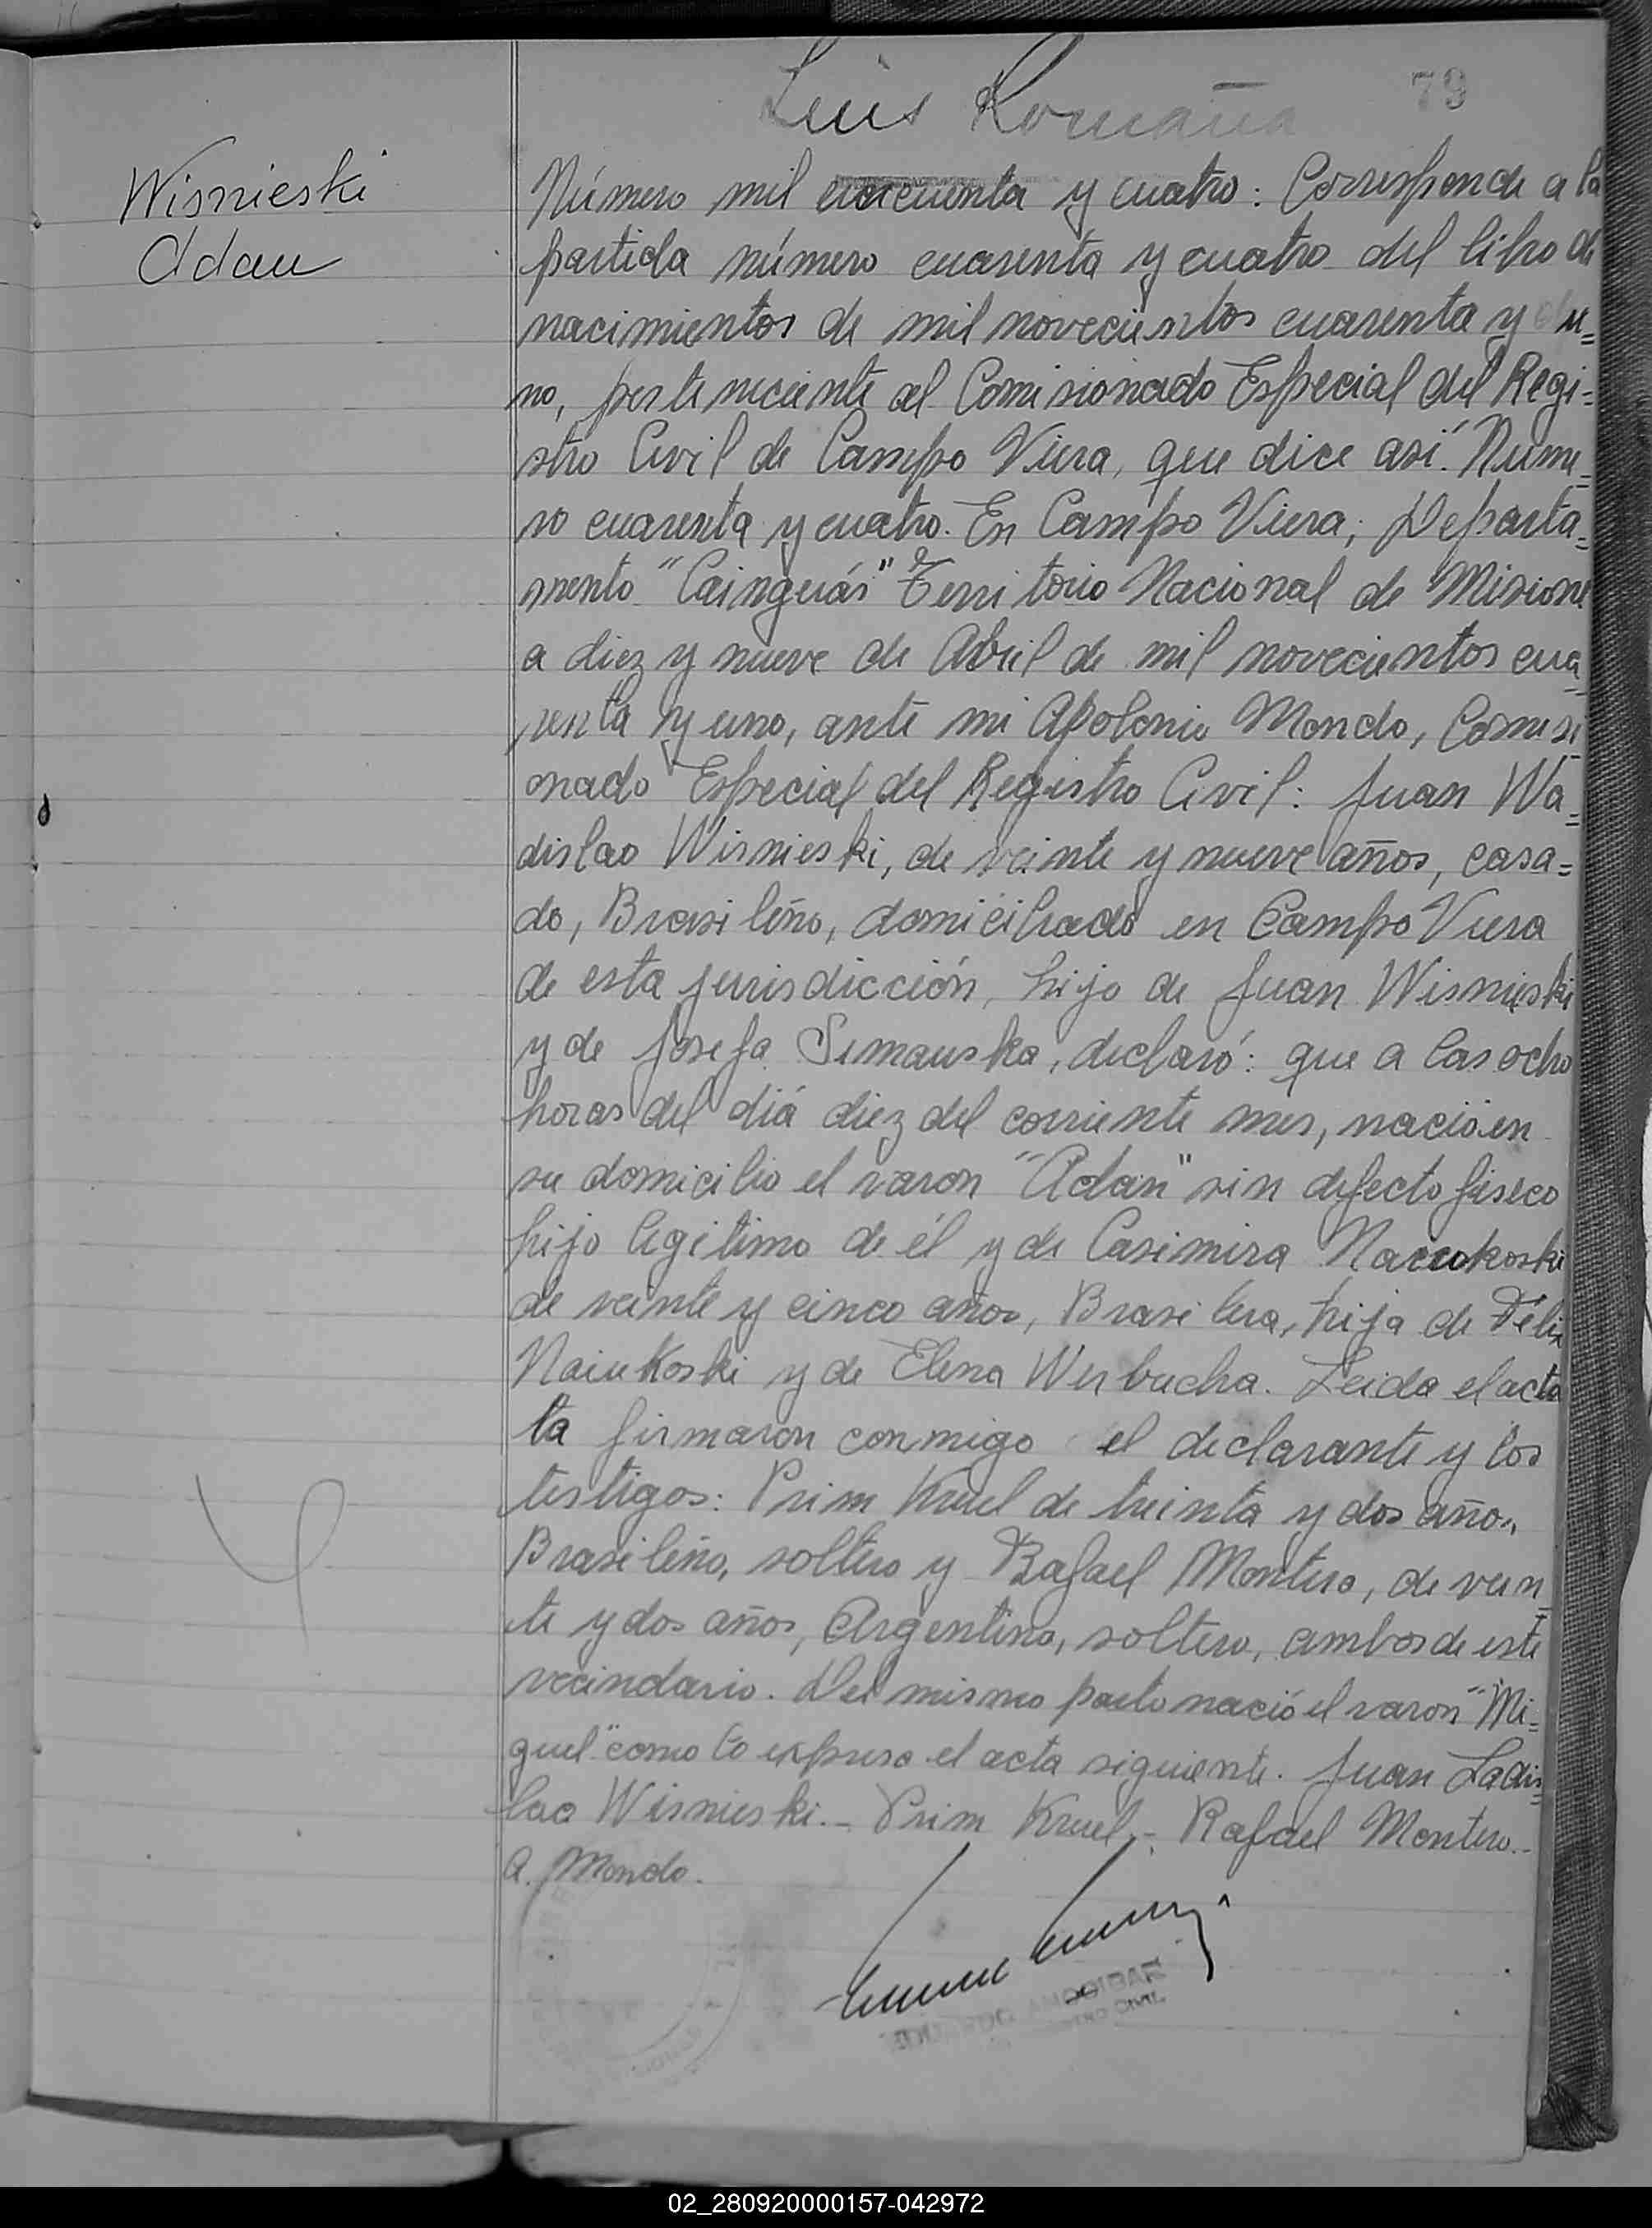 Luis Romaña
79
Wisnieski
Adan
Número mil cincuenta y cuatro: Corresponde a la
partida número cuarenta y cuatro del libro de
nacimientos de mil novecientos cuarenta y u=
no, perteneciente al Comisionado Especial del Regi=
stro Civil de Campo Viera, que dice así. Núme=
ro cuarenta y cuatro. En Campo Viera, Departa=
mento "Cainguás" Territorio Nacional de Misione
a diez y nueve de Abril de mil novecientos cua=
renta y uno, ante mi Apolonio Mondo, Comisi=
onado Especial del Registro Civil: Juan Wa=
dislao Wisnieski, de veinte y nueve años, casa=
do, Brasileño, domiciliado en Campo Viera
de esta jurisdicción, hijo de Juan Wisnieski
y de Josefa Simauska, declaró: que a las ocho
horas del diá diez del corriente mes, nació en
su domicilio el varon "Adan" sin defecto físico
hijo legitimo de él y de Casimira Naciukoski
de veinte y cinco años, Brasilera, hija de Félix
Naiukoski y de Elena Werbucha. Leida el acta
ta firmaron conmigo el declarante y los
testigos: Prim Kruel de treinta y dos años,
Brasileño, soltero y Rafael Montero, de vein=
te y dos años, Argentino, soltero, ambos de este
vecindario. Del mismo parto nació el varón "Mi=
guel" como lo expresa el acta siguiente. Juan Ladis=
lao Wisnieski.- Prim Kruel.- Rafael Montero.-
A. Mondo.
02_280920000157-042972